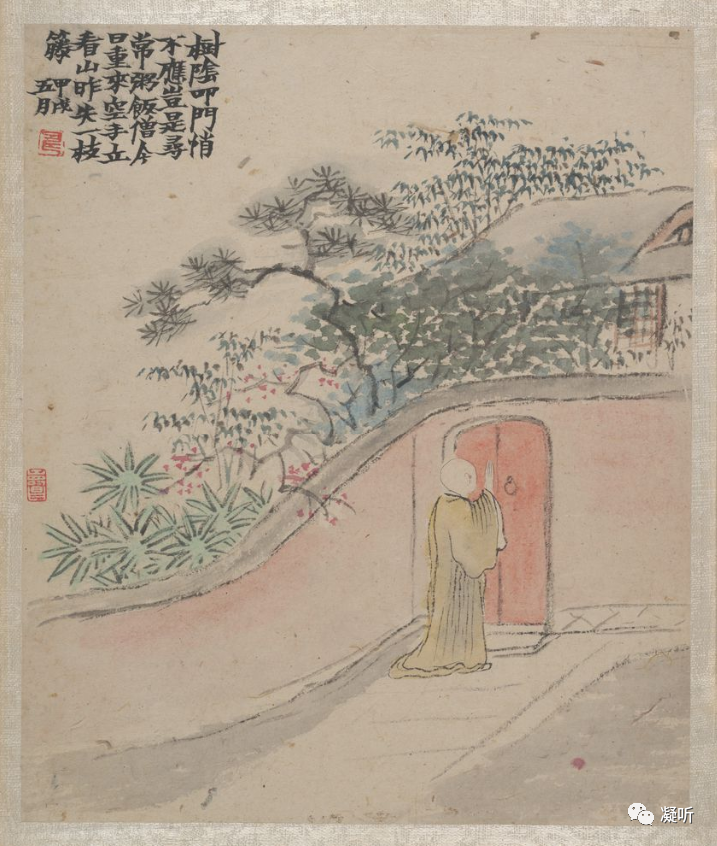 樹陰叩門悄
不應豈是尋
常粥飯僧今
日重來空手立
看山昨失一枝
籐
甲戌
五月
凝听